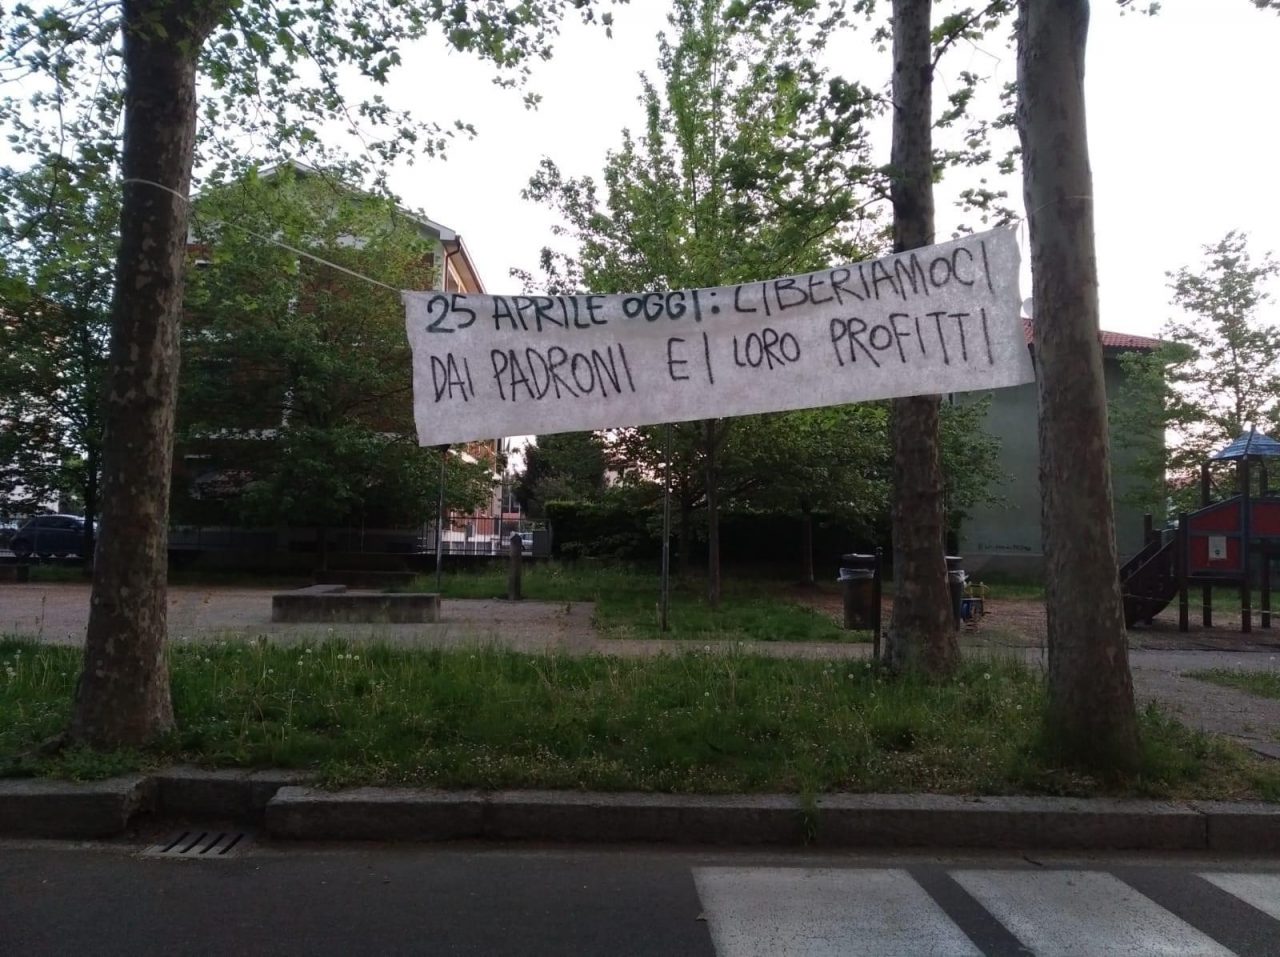 25 APRILE OGGI: LIBERIAMOCI
DAI PADRONI E I LORO PROFITTI